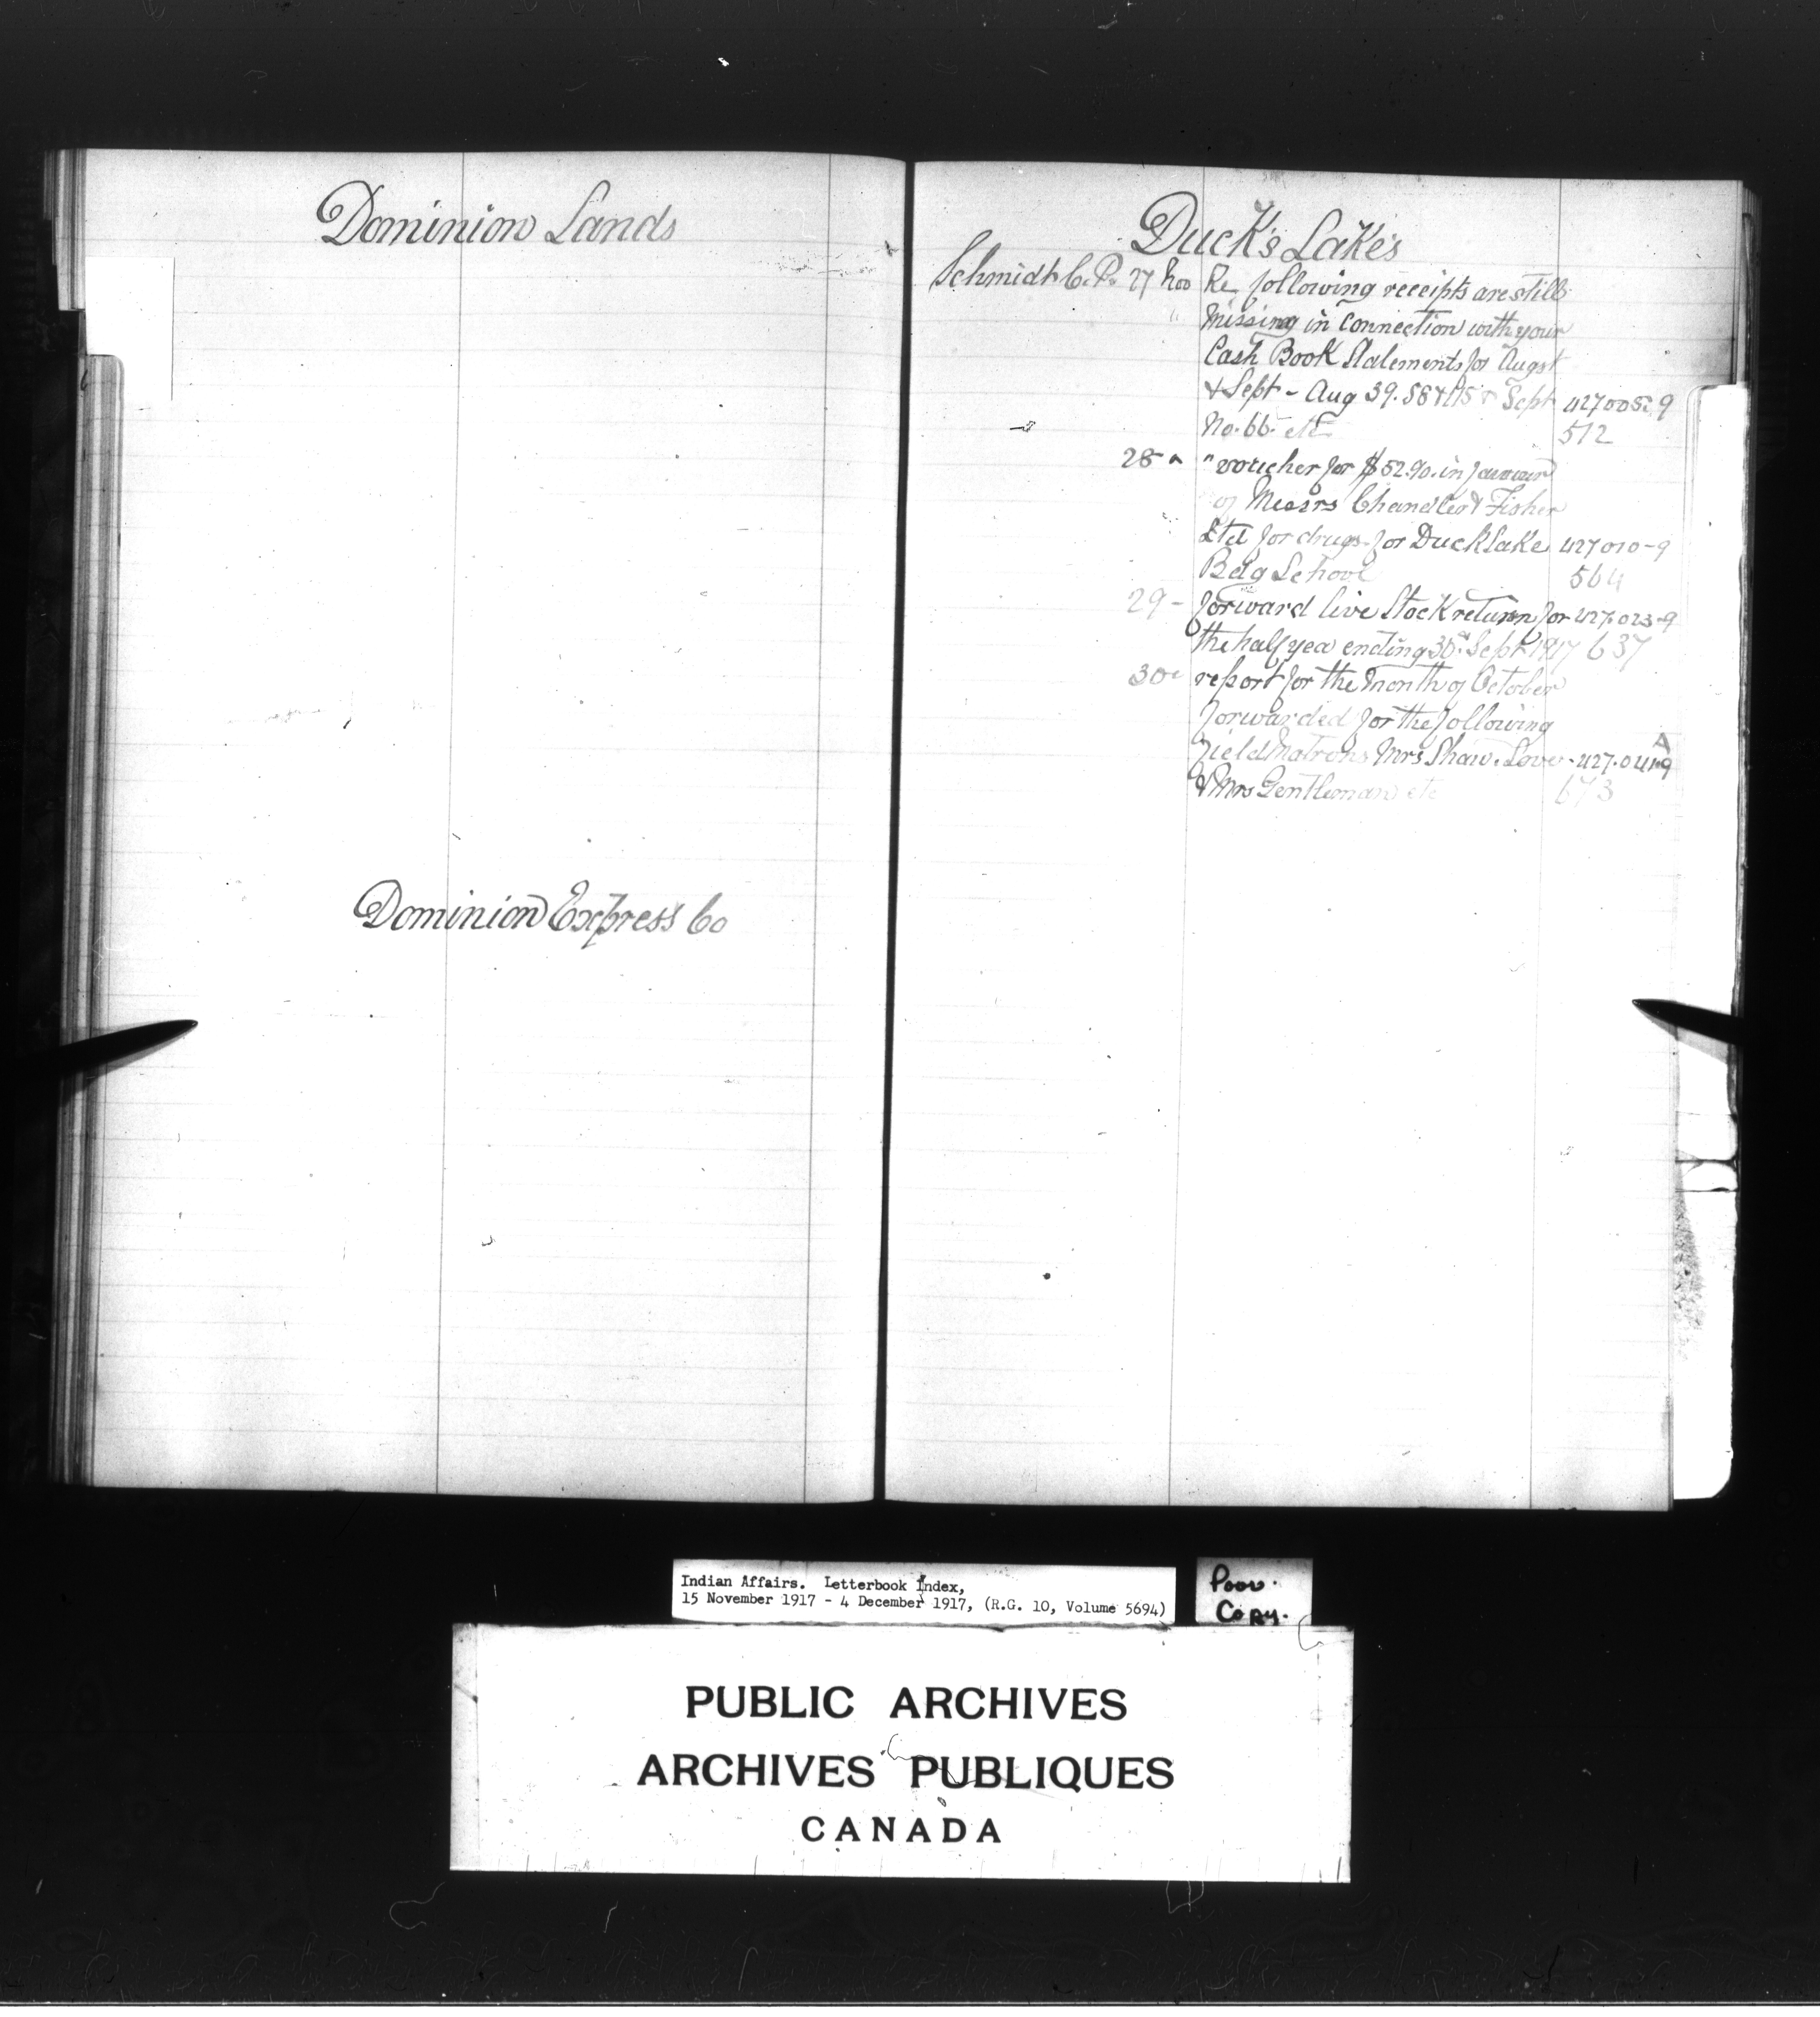 Dominion Lands
Dominion Express Co
Duck's Lake's
Schmidt C.P. 27 Nov Re following receipts are still
" missing in connection with your
Cash Book Statements for Augst
& Sept - Aug 39. 58 & Sept 427005-9
No. 66 etc 512
28 " " voucher for $52.90 in favour
of Messrs Chandler & Fisher
Ltd for drugs for Duck Lake 427010-9
Bdg School 564
29 - forward live Stock return for 427.023-9
the half year ending 30th Sept 1917 637
30 report for the month of October
forwarded for the following
A
field Matrons Mrs Shaw. Love 427.041-9
& Mrs Gentleman etc 673
Indian Affairs. Letterbook Index,
15 November 1917 - 4 December 1917, (R.G. 10, Volume 5694)
Poor.
Copy.
PUBLIC ARCHIVES
ARCHIVES PUBLIQUES
CANADA